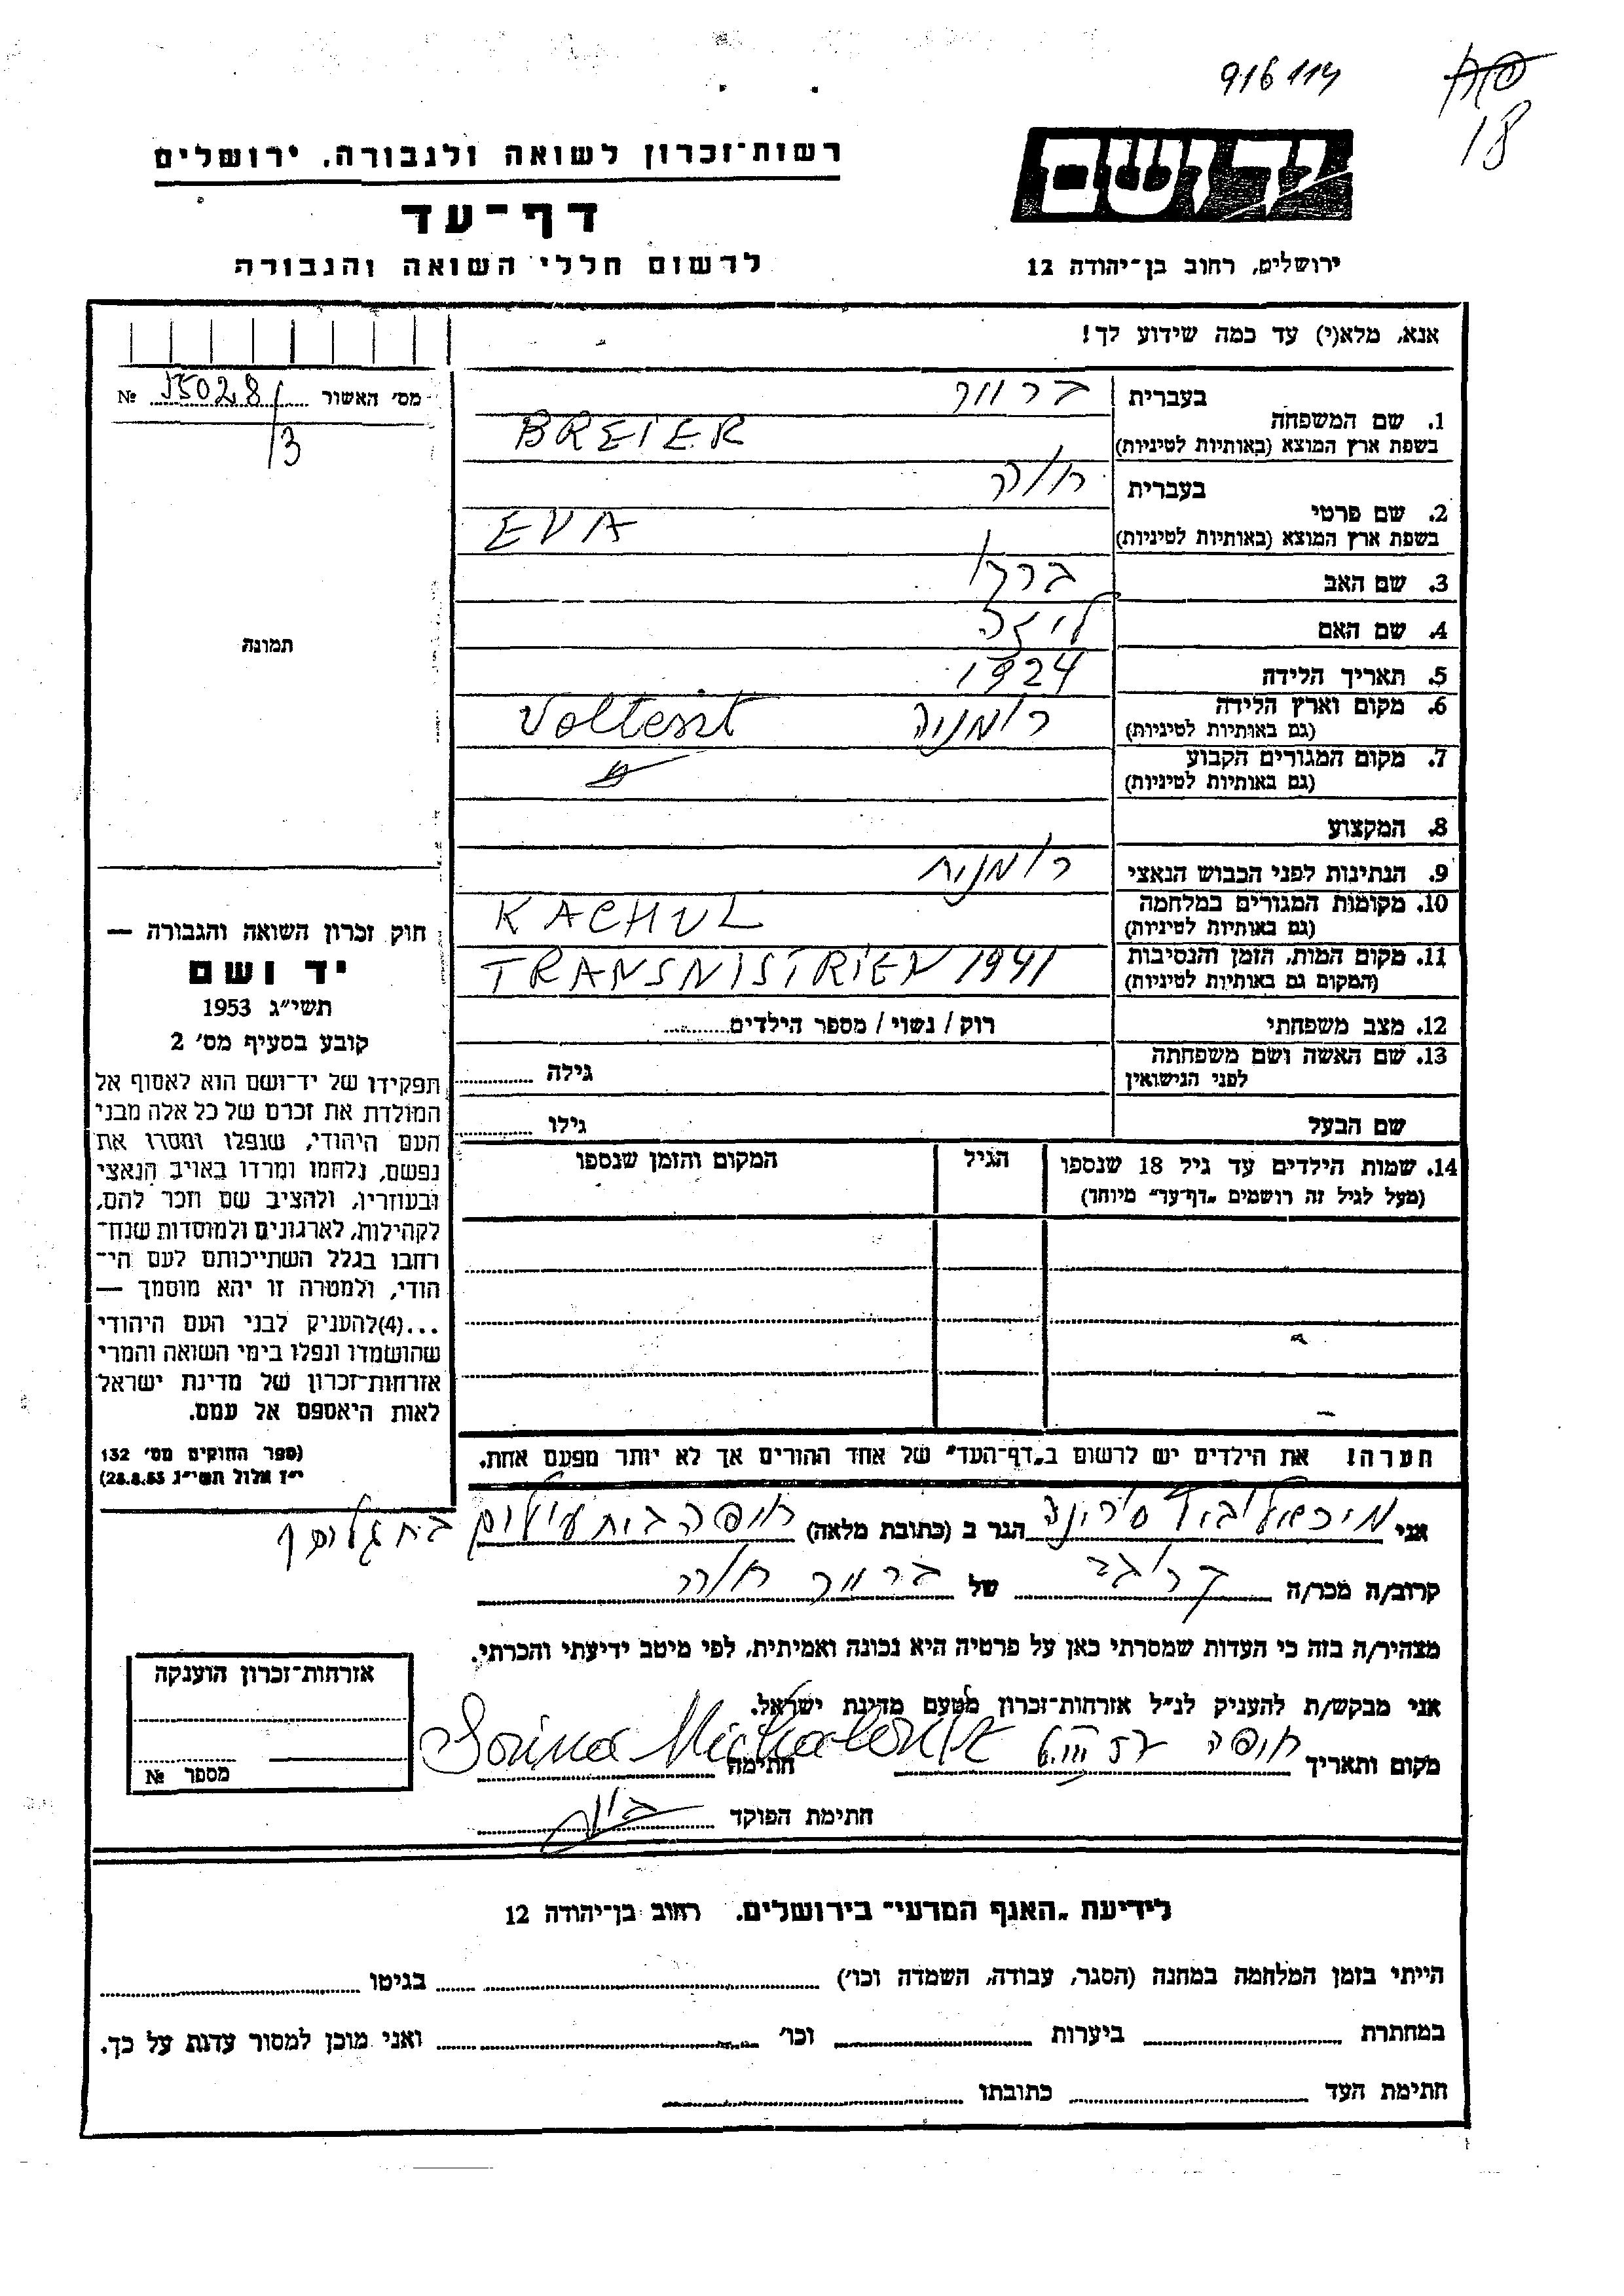 916114
18
יד ושם
רשות־זכרון לשואה ולגבורה, ירושלים
דף־עד
ירושלים, רחוב בן־יהודה 12
לרשום חללי השואה והגבורה
אנא, מלא(י) עד כמה שידוע לך!
מס׳ האשור 55028 №
/3
תמונה
1. שם המשפחה בעברית ברייר
בשפת ארץ המוצא (באותיות לטיניות) BREIER
2. שם פרטי בעברית חוה
בשפת ארץ המוצא (באותיות לטיניות) EVA
3. שם האב
4. שם האם ליזה
5. תאריך הלידה 1924
6. מקום וארץ הלידה רומניה
(גם באותיות לטיניות)
7. מקום המגורים הקבוע
(גם באותיות לטיניות)
8. המקצוע
9. הנתינות לפני הכבוש הנאצי רומנית
10. מקומות המגורים במלחמה KACHUL
(גם באותיות לטיניות)
11. מקום המות, הזמן והנסיבות TRANSNISTRIEN 1941
(המקום גם באותיות לטיניות)
12. מצב משפחתי רוק / נשוי / מספר הילדים
13. שם האשה ושם משפחתה גילה
לפני הנישואין
שם הבעל גילו
14. שמות הילדים עד גיל 18 שנספו הגיל המקום והזמן שנספו
(מעל לגיל זה רושמים „דף־עד" מיוחד)
חוק זכרון השואה והגבורה —
יד ושם
תשי״ג 1953
קובע בסעיף מס׳ 2
תפקידו של יד־ושם הוא לאסוף אל
המולדת את זכרם של כל אלה מבני
העם היהודי, שנפלו ומסרו את
נפשם, נלחמו ומרדו באויב הנאצי
ובעוזריו, ולהציב שם וזכר להם,
לקהילות, לארגונים ולמוסדות שנח־
רחבו בגלל השתייכותם לעם הי־
הודי, ולמטרה זו יהא מוסמך —
...(4)להעניק לבני העם היהודי
שהושמדו ונפלו בימי השואה והמרי
אזרחות־זכרון של מדינת ישראל
לאות היאספם אל עמם.
(ספר החוקים מס׳ 132
י״ז אלול תשי״ג 28.8.53)
הערה! את הילדים יש לרשום ב„דף־העד" של אחד ההורים אך לא יותר מפעם אחת.
אני הגר ב (כתובת מלאה) חיפה
קרוב/ה מכר/ה של ברייר חוה
מצהיר/ה בזה כי העדות שמסרתי כאן על פרטיה היא נכונה ואמיתית, לפי מיטב ידיעתי והכרתי.
אני מבקש/ת להעניק לנ״ל אזרחות־זכרון מטעם מדינת ישראל.
מקום ותאריך חיפה חתימה Sorina
חתימת הפוקד
אזרחות־זכרון הוענקה
מספר №
לידיעת „האגף המדעי" בירושלים. רחוב בן־יהודה 12
הייתי בזמן המלחמה במחנה (הסגר, עבודה, השמדה וכו׳) בגיטו
במחתרת ביערות וכו׳ ואני מוכן למסור עדות על כך.
חתימת העד כתובתו